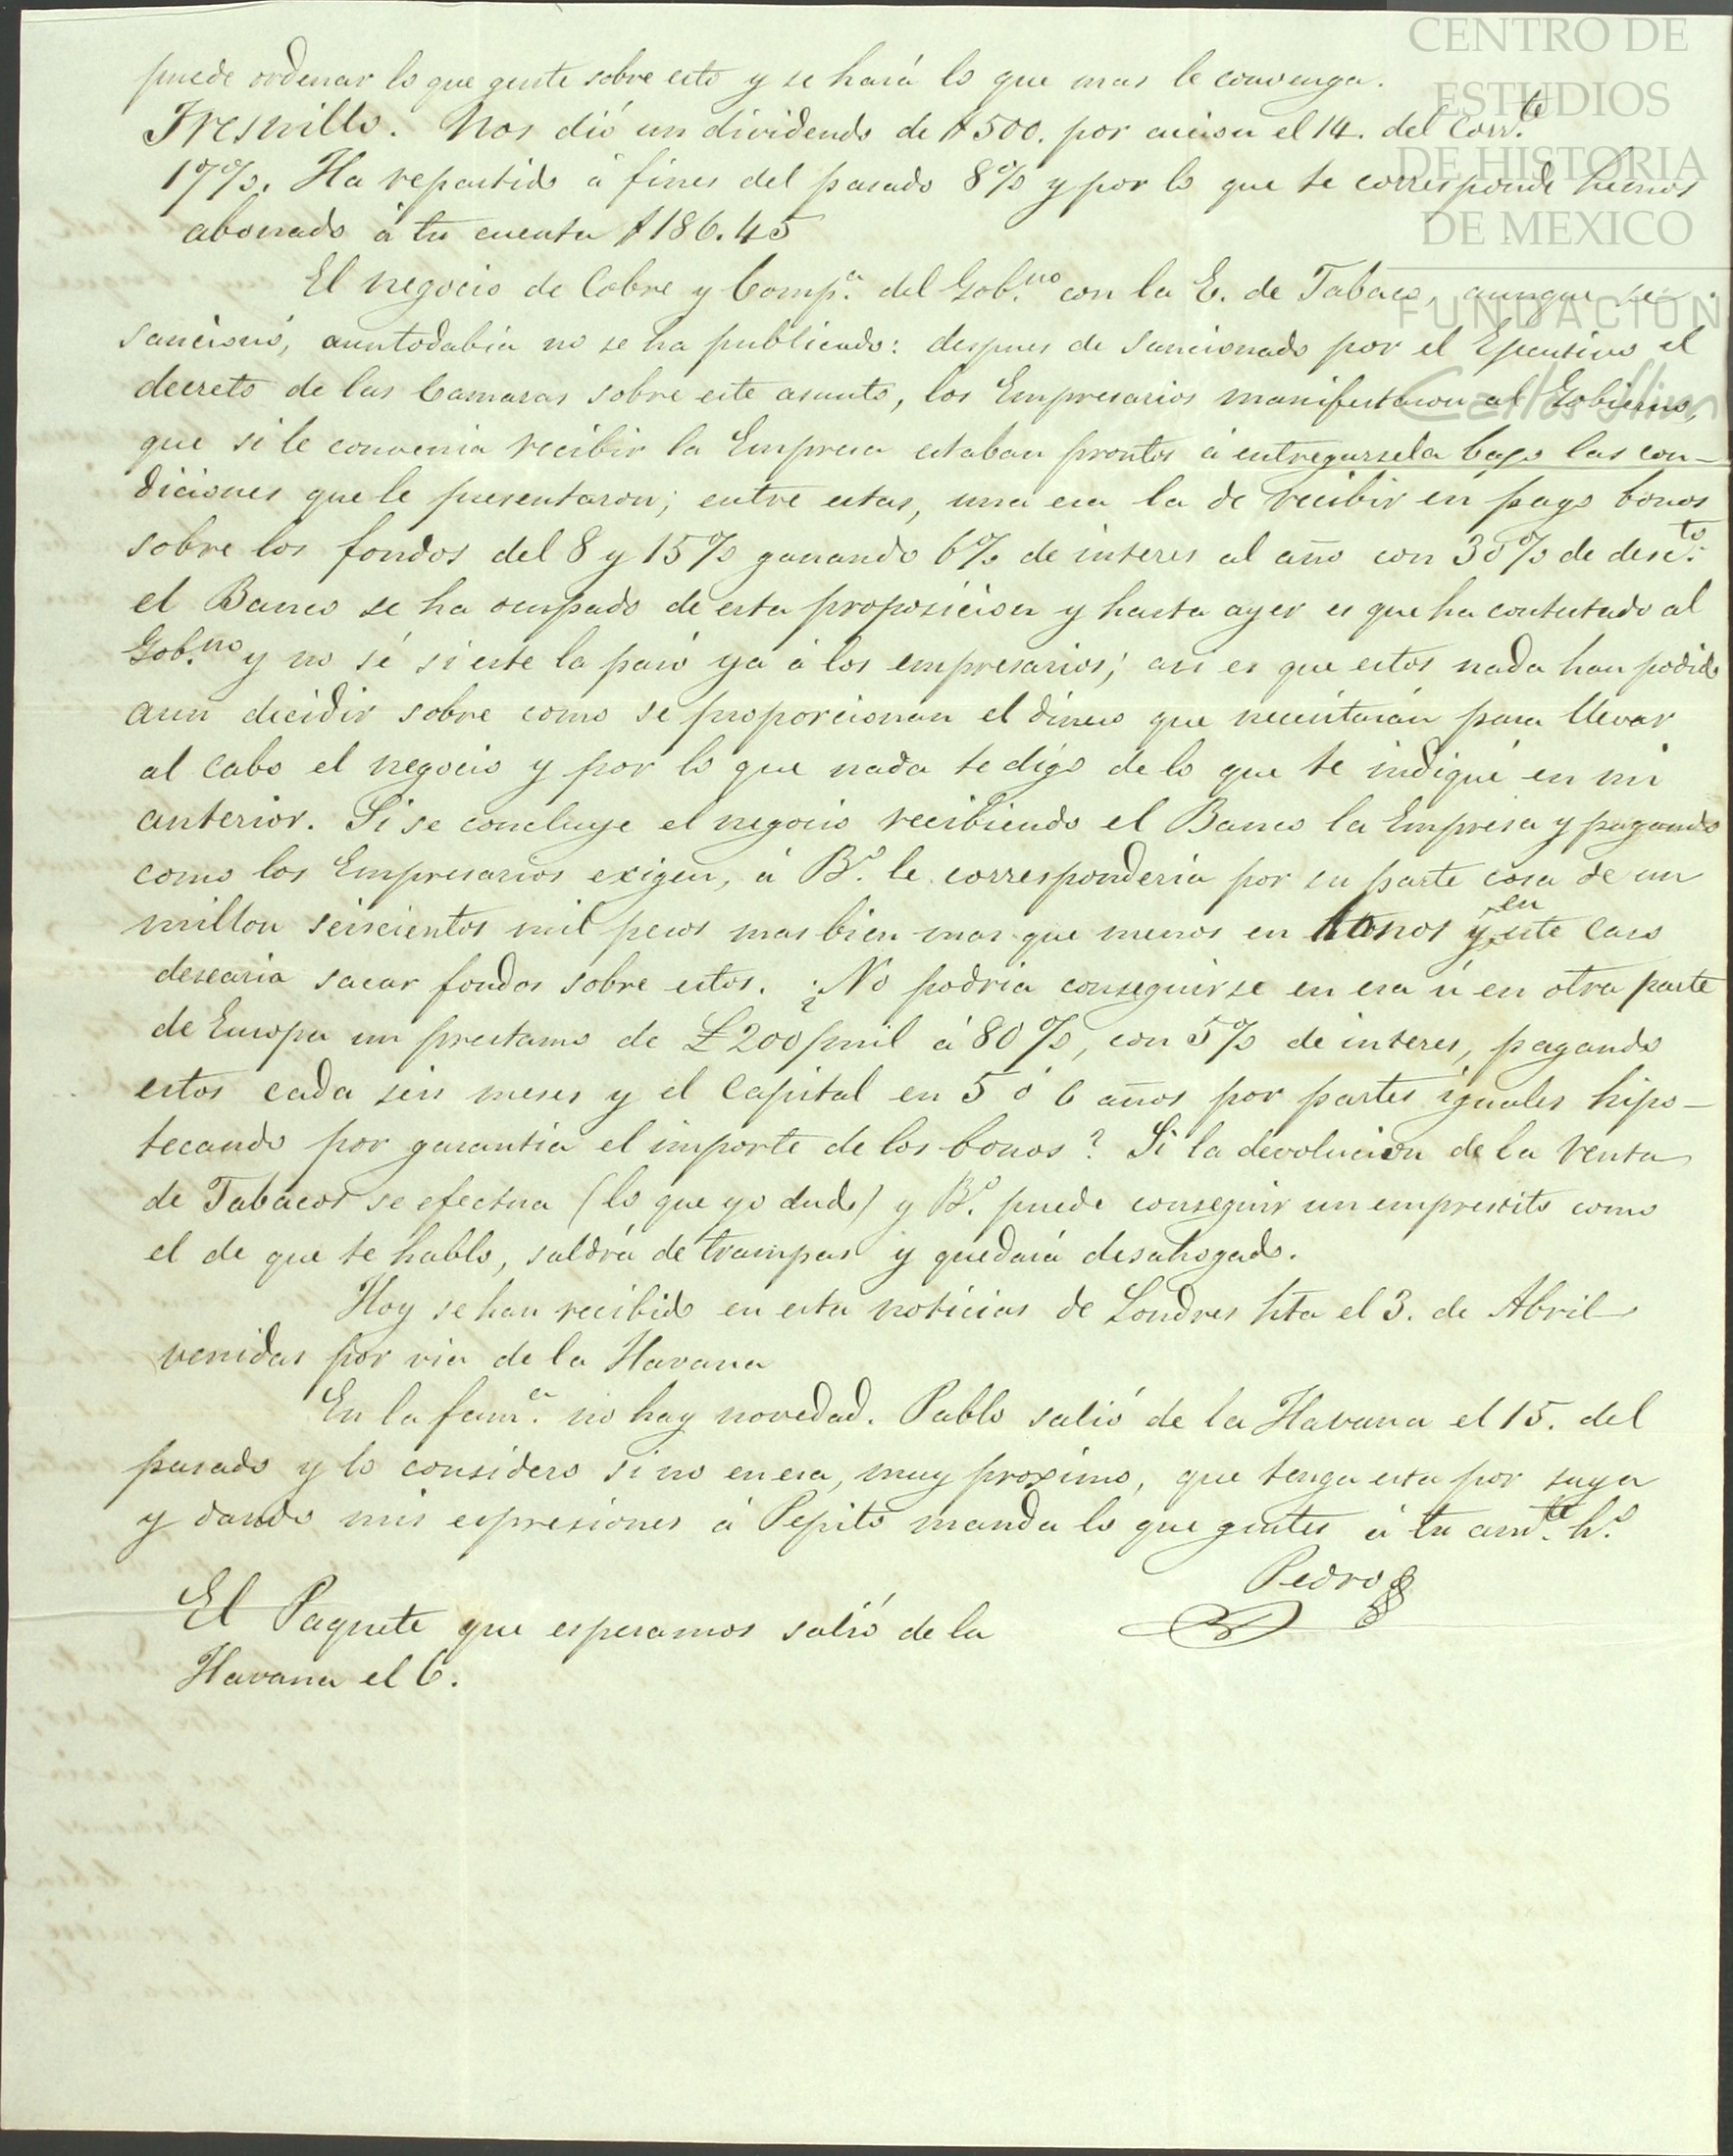 CENTRO DE
ESTUDIOS
DE HISTORIA
DE MEXICO
FUNDACIÓN
Carlos Slim
puede ordenar lo que guste sobre esto y se hará lo que mas le convenga.
Fresnillo. Nos dió un dividendo de $500. por accion el 14. del Corr.te
17%. Ha repartido á fines del pasado 8% y por lo que te corresponde hemos
abonado á tu cuenta $186.45
El negocio de Cobre y Comp.a del Gob.no con la E. de Tabaco, aunque se
sancionó, aun todabia no se ha publicado: despues de sancionado por el Ejecutivo el
decreto de las Camaras sobre este asunto, los Empresarios manifestaron al Gobierno,
que si le convenia recibir la Empresa estaban prontos á entregarsela bajo las con-
diciones que le presentaron; entre estas, una era la de recibir en pago bonos
sobre los fondos del 8 y 15% ganando 6% de interes al año con 30% de desc.to:
el Banco se ha ocupado de esta proposicion y hasta ayer es que ha contestado al
Gob.no y no sé si este la pasó ya á los empresarios; asi es que estos nada han podido
aun decidir sobre como se proporcionan el dinero que necesitarán para llevar
al cabo el negocio y por lo que nada te digo de lo que te indiqué en mi
anterior. Si se concluye el negocio recibiendo el Banco la Empresa y pagando
como los Empresarios exigen, á B.o le corresponderia por su parte cosa de un
millon seiscientos mil pesos mas bien mas que menos en bonos y en este caso
desearia sacar fondos sobre estos. ¿No podria conseguirse en esa ú en otra parte
de Europa un prestamo de £200/mil á 80%, con 5% de interes, pagando
estos cada seis meses y el Capital en 5 ó 6 años por partes iguales hipo-
tecando por garantia el importe de los bonos? Si la devolucion de la renta
de Tabacos se efectua (lo que yo dudo) y B.o puede conseguir un emprestito como
el de que te hablo, saldrá de trampas y quedará desahogado.
Hoy se han recibido en esta noticias de Londres hta el 3. de Abril
venidas por via de la Havana
En la fam.a no hay novedad. Pablo salió de la Havana el 15. del
pasado y lo considero si no en esa, muy proximo, que tenga esta por suya
y dando mis espresiones á Pepito manda lo que gustes á tu am.te h.o
Pedro
El Paquete que esperamos salió de la
Havana el 6.